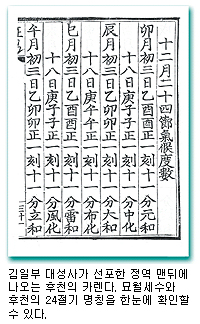 十二月二十四節氣候度數
卯月初三日乙酉酉正一刻十一分元和
十八日庚子子正一刻十一分中化
辰月初三日乙卯卯正一刻十一分大和
十八日庚午午正一刻十一分布化
巳月初三日乙酉酉正一刻十一分雷和
十八日庚子子正一刻十一分風化
午月初三日乙卯卯正一刻十一分立和
김일부 대성사가 선포한 정역 맨뒤에
나오는 후천의 카렌다. 묘월세수와
후천의 24절기 명칭을 한눈에 확인할
수 있다.